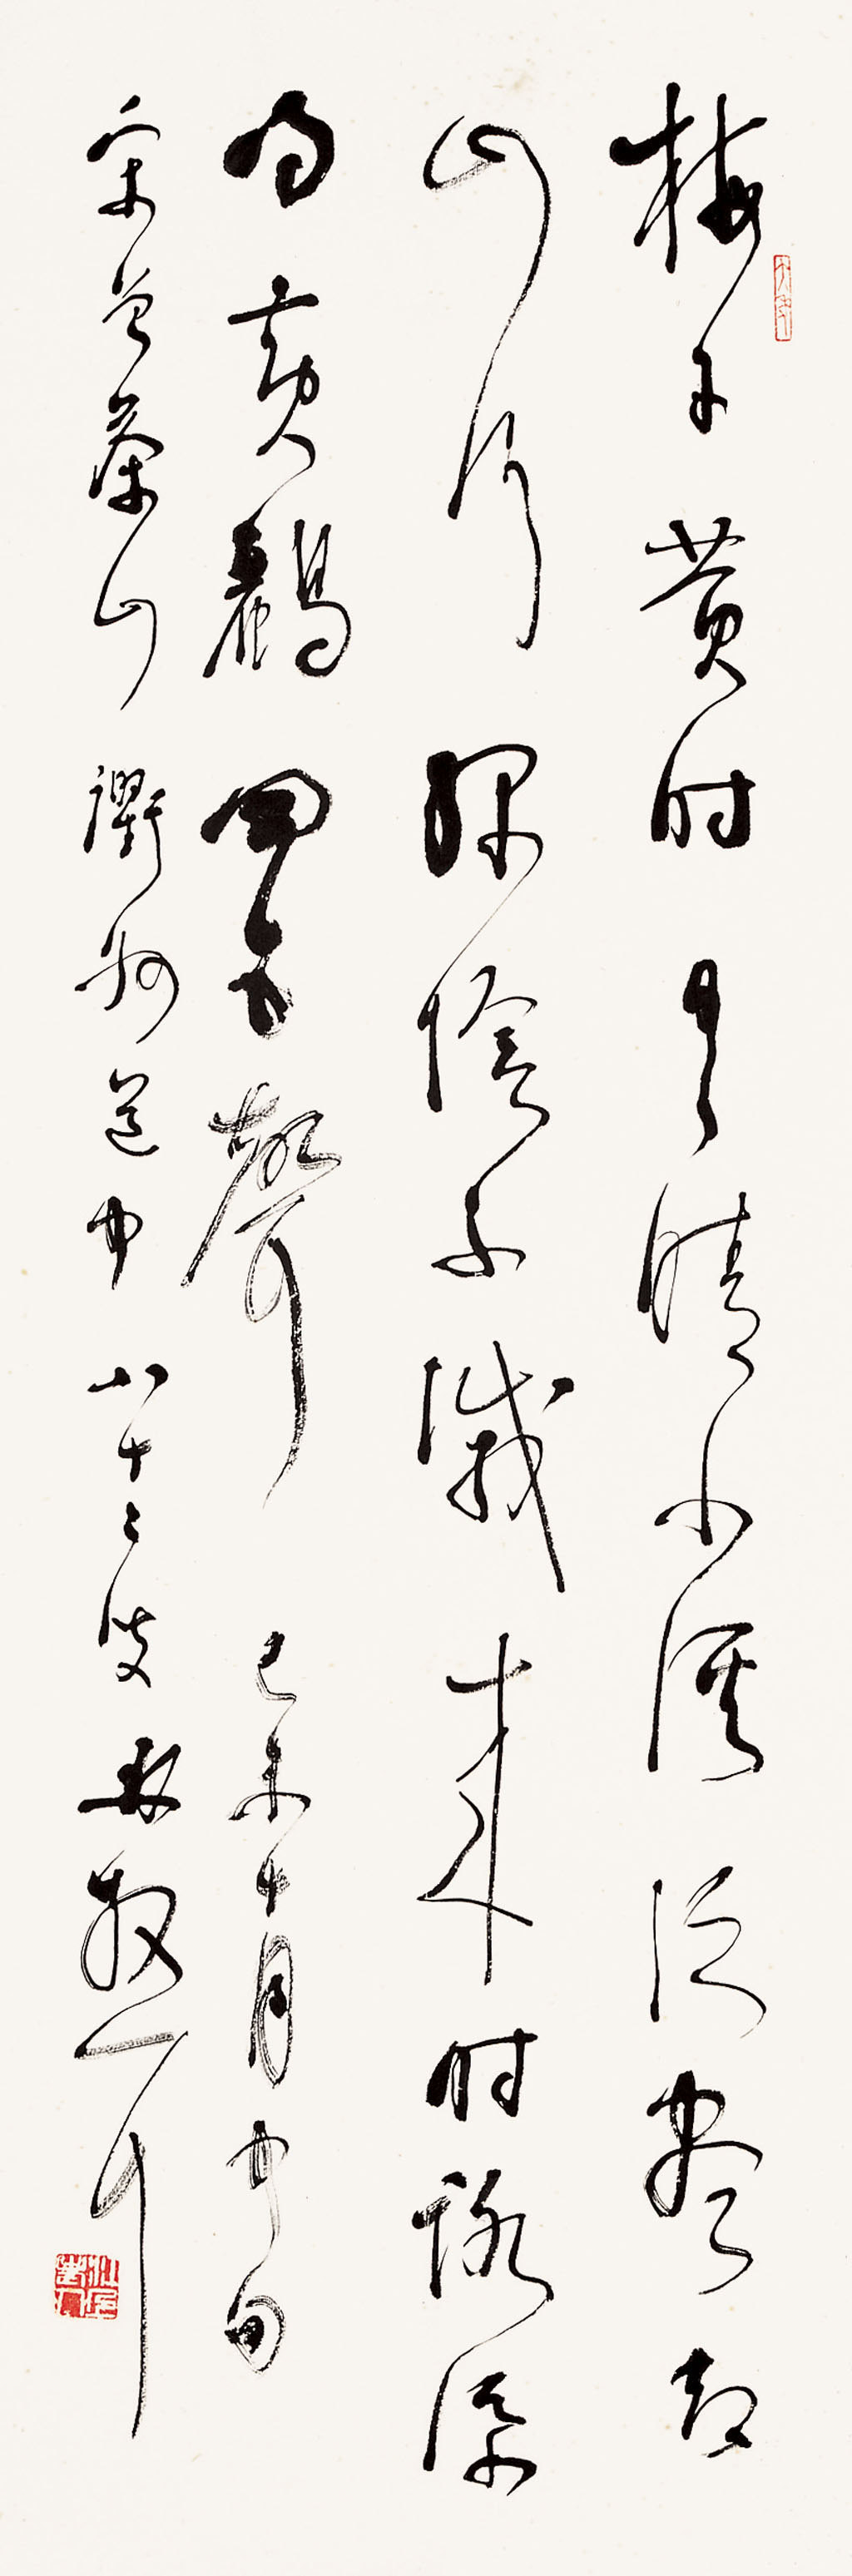 梅子黄时日日晴小溪泛尽却
山行绿阴不减来时路添
得黄鹂四五声 己未十月中旬
宋曾茶山衢州道中八十二叟林散耳